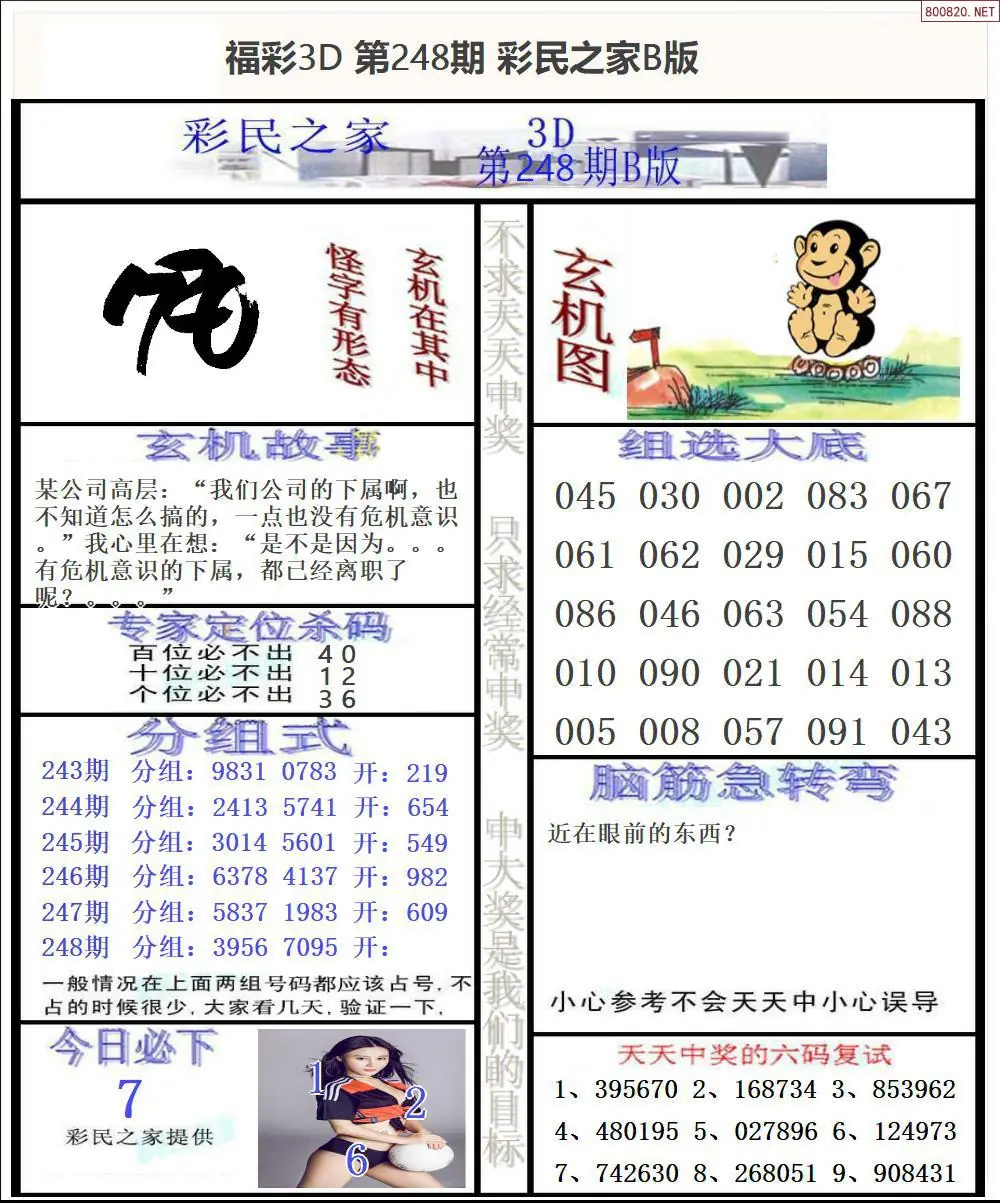 800820.NET
福彩3D 第248期 彩民之家B版
彩民之家
3D
第248期B版
怪字有形态
玄机在其中
玄机故事
某公司高层：“我们公司的下属啊，也
不知道怎么搞的，一点也没有危机意识
。”我心里在想：“是不是因为。。。
有危机意识的下属，都已经离职了
呢？。。。”
专家定位杀码
百位必不出 40
十位必不出 12
个位必不出 36
分组式
243期 分组：9831 0783 开：219
244期 分组：2413 5741 开：654
245期 分组：3014 5601 开：549
246期 分组：6378 4137 开：982
247期 分组：5837 1983 开：609
248期 分组：3956 7095 开：
一般情况在上面两组号码都应该占号，不
占的时候很少，大家看几天，验证一下，
今日必下
7
彩民之家提供
1
2
6
不求天天中奖
只求经常中奖
中大奖是我们的目标
玄机图
组选大底
045 030 002 083 067
061 062 029 015 060
086 046 063 054 088
010 090 021 014 013
005 008 057 091 043
脑筋急转弯
近在眼前的东西？
小心参考不会天天中小心误导
天天中奖的六码复试
1、395670 2、168734 3、853962
4、480195 5、027896 6、124973
7、742630 8、268051 9、908431